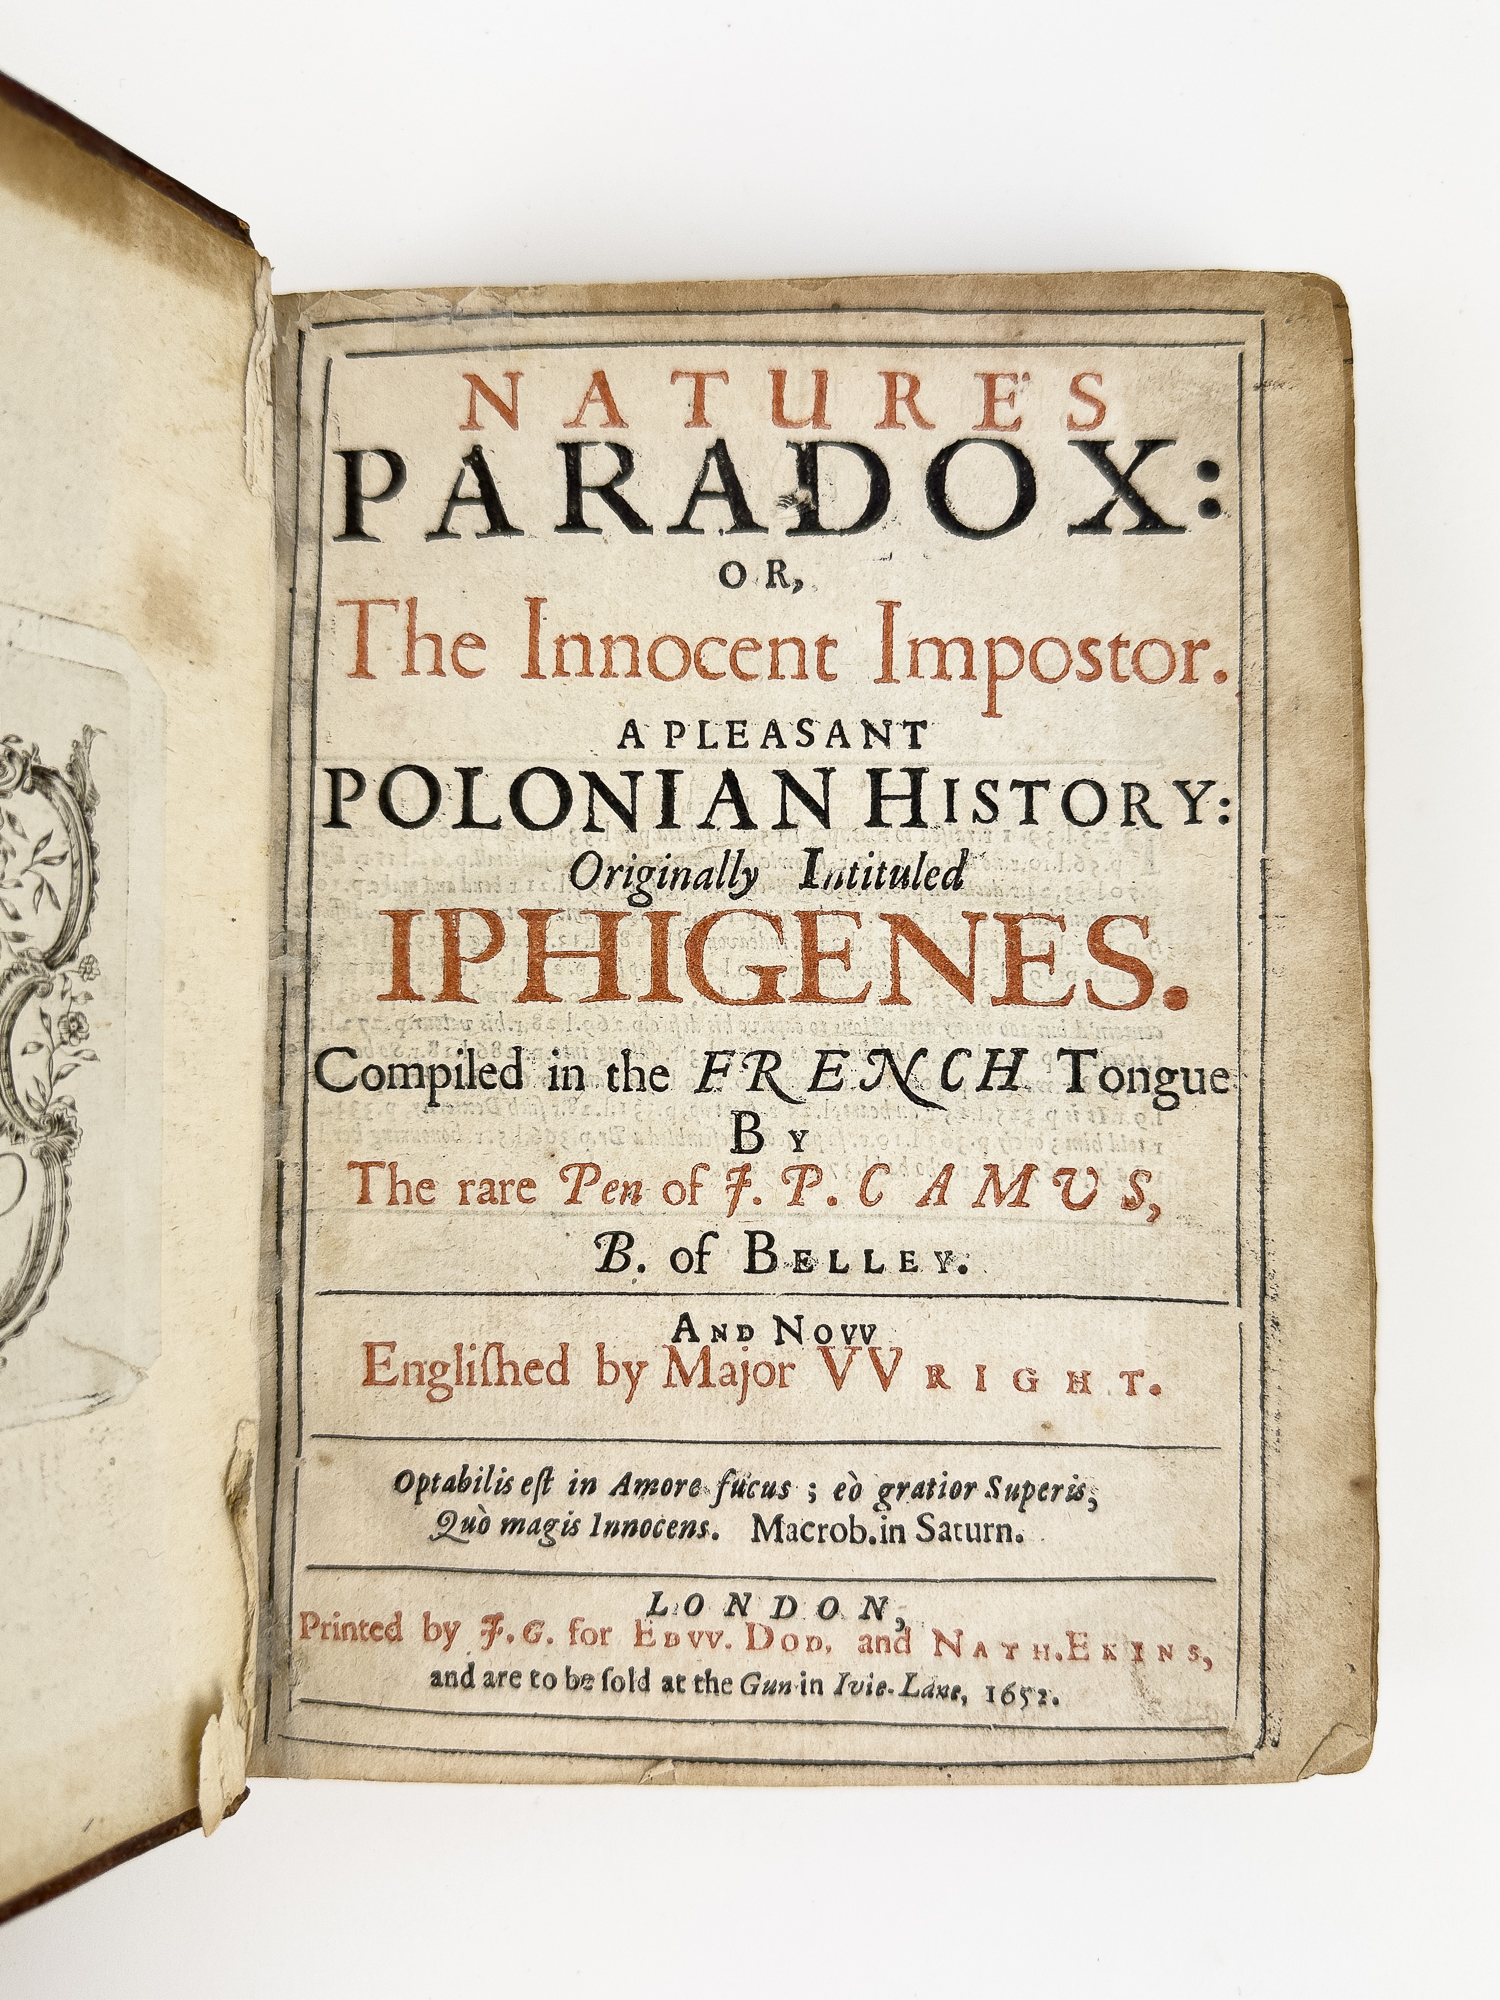 NATURE'S
PARADOX:
OR,
The Innocent Impostor.
A PLEASANT
POLONIAN HISTORY:
Originally Intituled
IPHIGENES.
Compiled in the FRENCH Tongue
BY
The rare Pen of J. P. CAMUS,
B. of BELLEY.
AND NOVV
Engliſhed by Major VVRIGHT.
Optabilis eſt in Amore fucus ; eò gratior Superis,
Quò magis Innocens. Macrob. in Saturn.
LONDON,
Printed by J. G. for EDVV. DOD, and NATH. EKINS,
and are to be ſold at the Gun in Ivie-Lane, 1652.